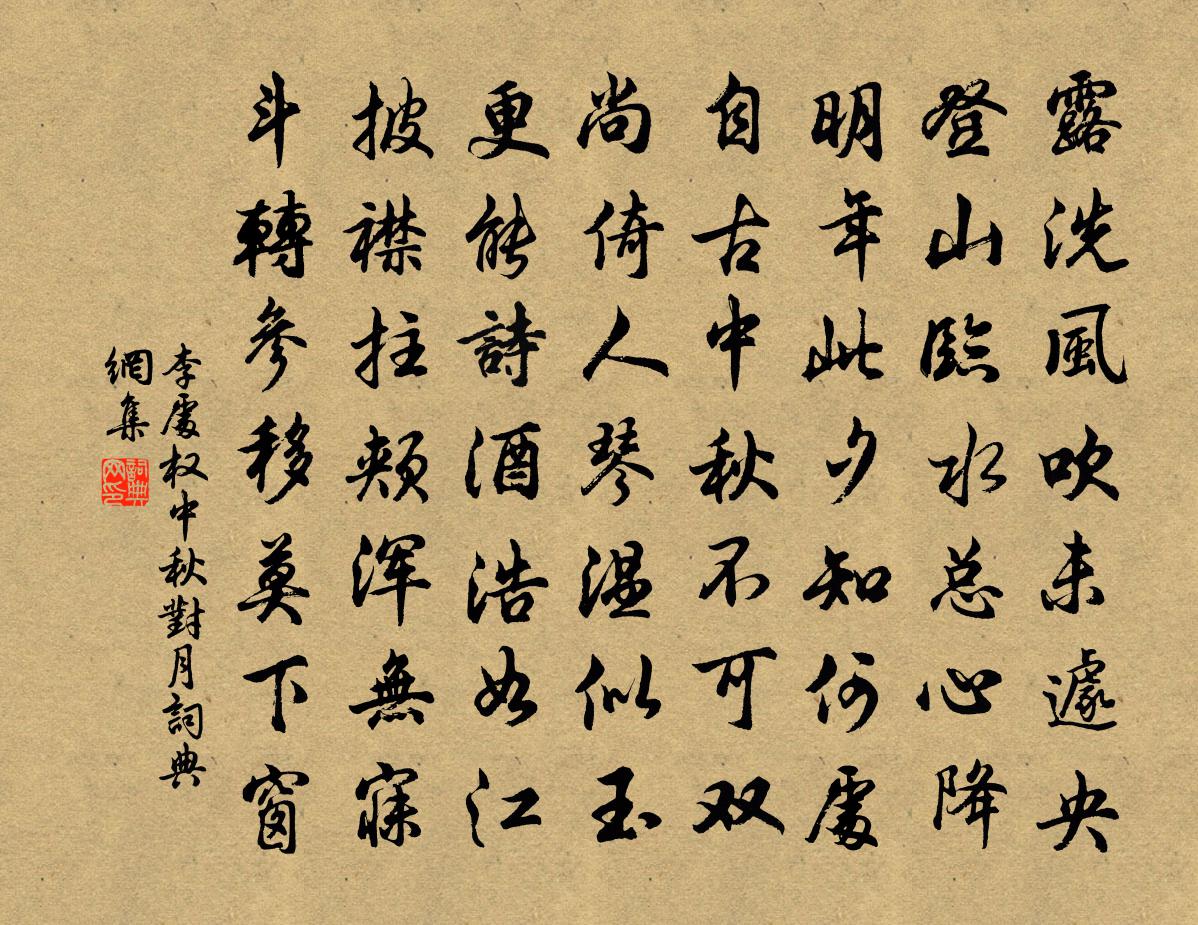 露洗風吹未遽央
登山臨水总心降
明年此夕知何處
自古中秋不可双
尚倚人琴温似玉
更能詩酒浩如江
披襟拄頰浑無寐
斗轉參移莫下窗
李處权中秋對月詞典
網集
詞典
网印